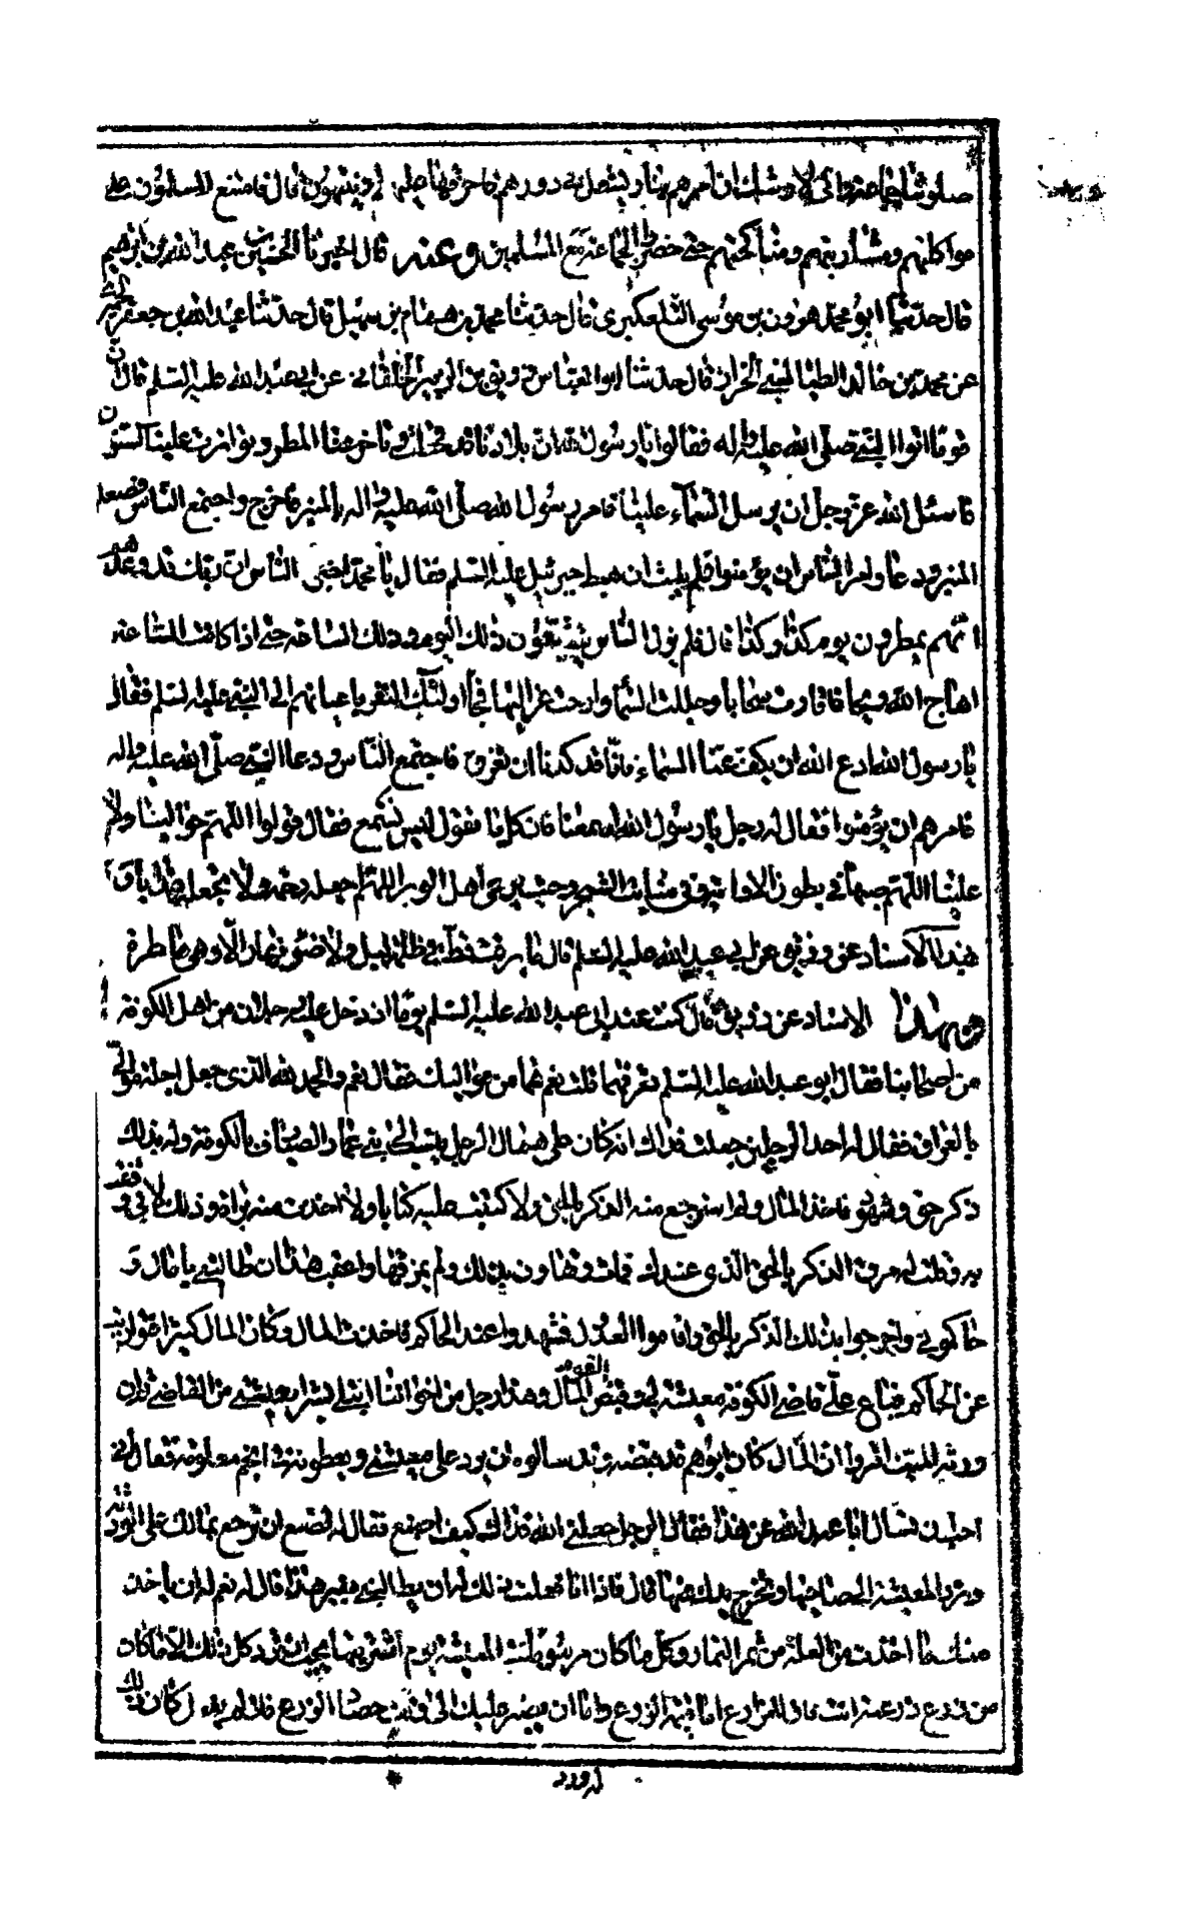 صلوتنا جماعة وانى لاوشك ان امر هم بنار يشعل فى دورهم فاحرقها عليهم او ينتهون قال فامتنع المسلمون على
مواكلتهم ومشاربتهم ومناكحتهم حتى حضروا الجماعة مع المسلمين وعنه قال اخبرنا الحسين بن عبد الله بن ابرهيم
قال حدثنا ابو محمد هرون بن موسى التلعكبرى قال حدثنا محمد بن همام بن سهيل قال حدثنا عبد الله بن جعفر الحميرى
عن محمد بن خالد الطيالسى الخزاز قال حدثنا ابو العباس رزيق بن الزبير الخلقانى عن ابى عبد الله عليه السلم قال ان
قوما اتوا النبى صلى الله عليه واله فقالوا يا رسول الله ان بلادنا قد قحطت وتاخر عنا المطر وتواترت علينا السنون
فاسئل الله عز وجل ان يرسل السماء علينا فامر رسول الله صلى الله عليه واله بالمنبر فاخرج واجتمع الناس فصعد
المنبر ودعا وامر الناس ان يؤمنوا فلم يلبث ان هبط جبرئيل عليه السلم فقال يا محمد اخبر الناس ان ربك قد وعدهم
انهم يمطرون يوم كذا وكذا قال فلم يزل الناس يتوقعون ذلك اليوم وذلك الساعة حتى اذا كانت الساعة
اهاج الله ريحا فاثارت سحابا وجللت السماء وارخت عزاليها فجاء اولئك النفر باعيانهم الى النبى عليه السلم فقالوا
يا رسول الله ادع الله ان يكف عنا السماء فانا قد كدنا ان نغرق فاجتمع الناس ودعا النبى صلى الله عليه واله
فامرهم ان يؤمنوا فقال له رجل يا رسول الله اسمعنا فان كل ما تقول ليس نسمع فقال قولوا اللهم حوالينا ولا
علينا اللهم صبها فى بطون الاودية وفى منابت الشجر وحيث يرعى اهل الوبر اللهم اجعله رحمة ولا تجعله عذابا وَ
بهذا الاسناد عن رزيق عن ابى عبد الله عليه السلم قال ما برقت قط فى ظلمة ليل ولا ضوء نهار الا وهى ماطرة
وبهذا الاسناد عن رزيق قال كنت عند ابى عبد الله عليه السلم يوما اذ دخل عليه رجلان من اهل الكوفة
من اصحابنا فقال ابو عبد الله عليه السلم تعرفهما قلت نعم هما من مواليك فقال نعم والحمد لله الذى جعل اجلة موالى
بالعراق فقال له احد الرجلين جعلت فداك انه كان على مال لرجل ينسب الى بنى عمار الصيارف بالكوفة وله بذلك
ذكر حق وشهود فاخذ المال ولم استرجع منه الذكر بالحق ولا كتبت عليه كتابا ولا اخذت منه براءة وذلك لانى وثقت
به وقلت له مزق الذكر بالحق الذى عندك فمات وتهاون بذلك ولم يمزقها واعقب هذا ان طالبنى بالمال وَ
حاكمونى واخرجوا بذلك الذكر بالحق واقاموا العدول فشهدوا عند الحاكم فاخذت بالمال وكان المال كثيرا فتواريت
عن الحاكم فباع على قاضى الكوفة معيشة لى وقبض القوم المال وهذا رجل من اخواننا ابتلى بشراء معيشتى من القاضى ثم ان
ورثة الميت اقروا ان المال كان ابوهم قد قبضه وقد سالوه ان يرد على معيشتى ويعطونه فى انجم معلومة فقال انى
احب ان تسال ابا عبد الله عن هذا فقال الرجل جعلنى الله فداك كيف اصنع فقال له تصنع ان ترجع بمالك على الورثة
وترد المعيشة الى صاحبها وتخرج يدك عنها قال فاذا انا فعلت ذلك له ان يطالبنى بغير هذا قال له نعم له ان ياخذ
منك ما اخذت من الغلة من ثمر الثمار وكل ما كان مرسوما فى المعيشة يوم اشتريتها يجب ان ترد كل ذلك الا ما كان
من زرع زرعته انت فان للزارع اما قيمة الزرع واما ان يصبر عليك الى وقت حصاد الزرع فان لم يفعل كان ذلك
له ورد